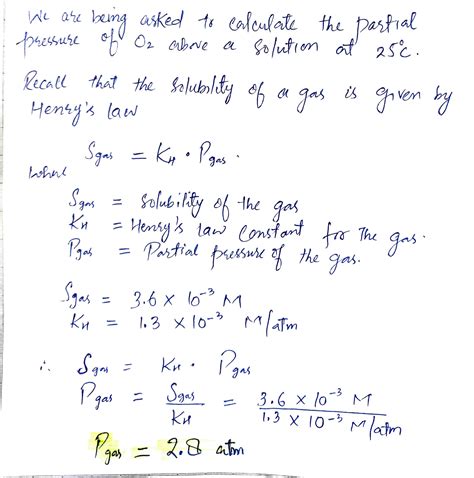 We are being asked to calculate the partial
pressure of O₂ above a solution at 25°C.
Recall that the solubility of a gas is given by
Henry's law
Sgas = KH · Pgas .
where
Sgas = Solubility of the gas
KH = Henry's law constant for the gas.
Pgas = Partial pressure of the gas.
Sgas = 3.6 × 10⁻³ M
KH = 1.3 × 10⁻³ M/atm
∴ Sgas = KH · Pgas
Pgas = Sgas / KH = 3.6 × 10⁻³ M / 1.3 × 10⁻³ M/atm
Pgas = 2.8 atm